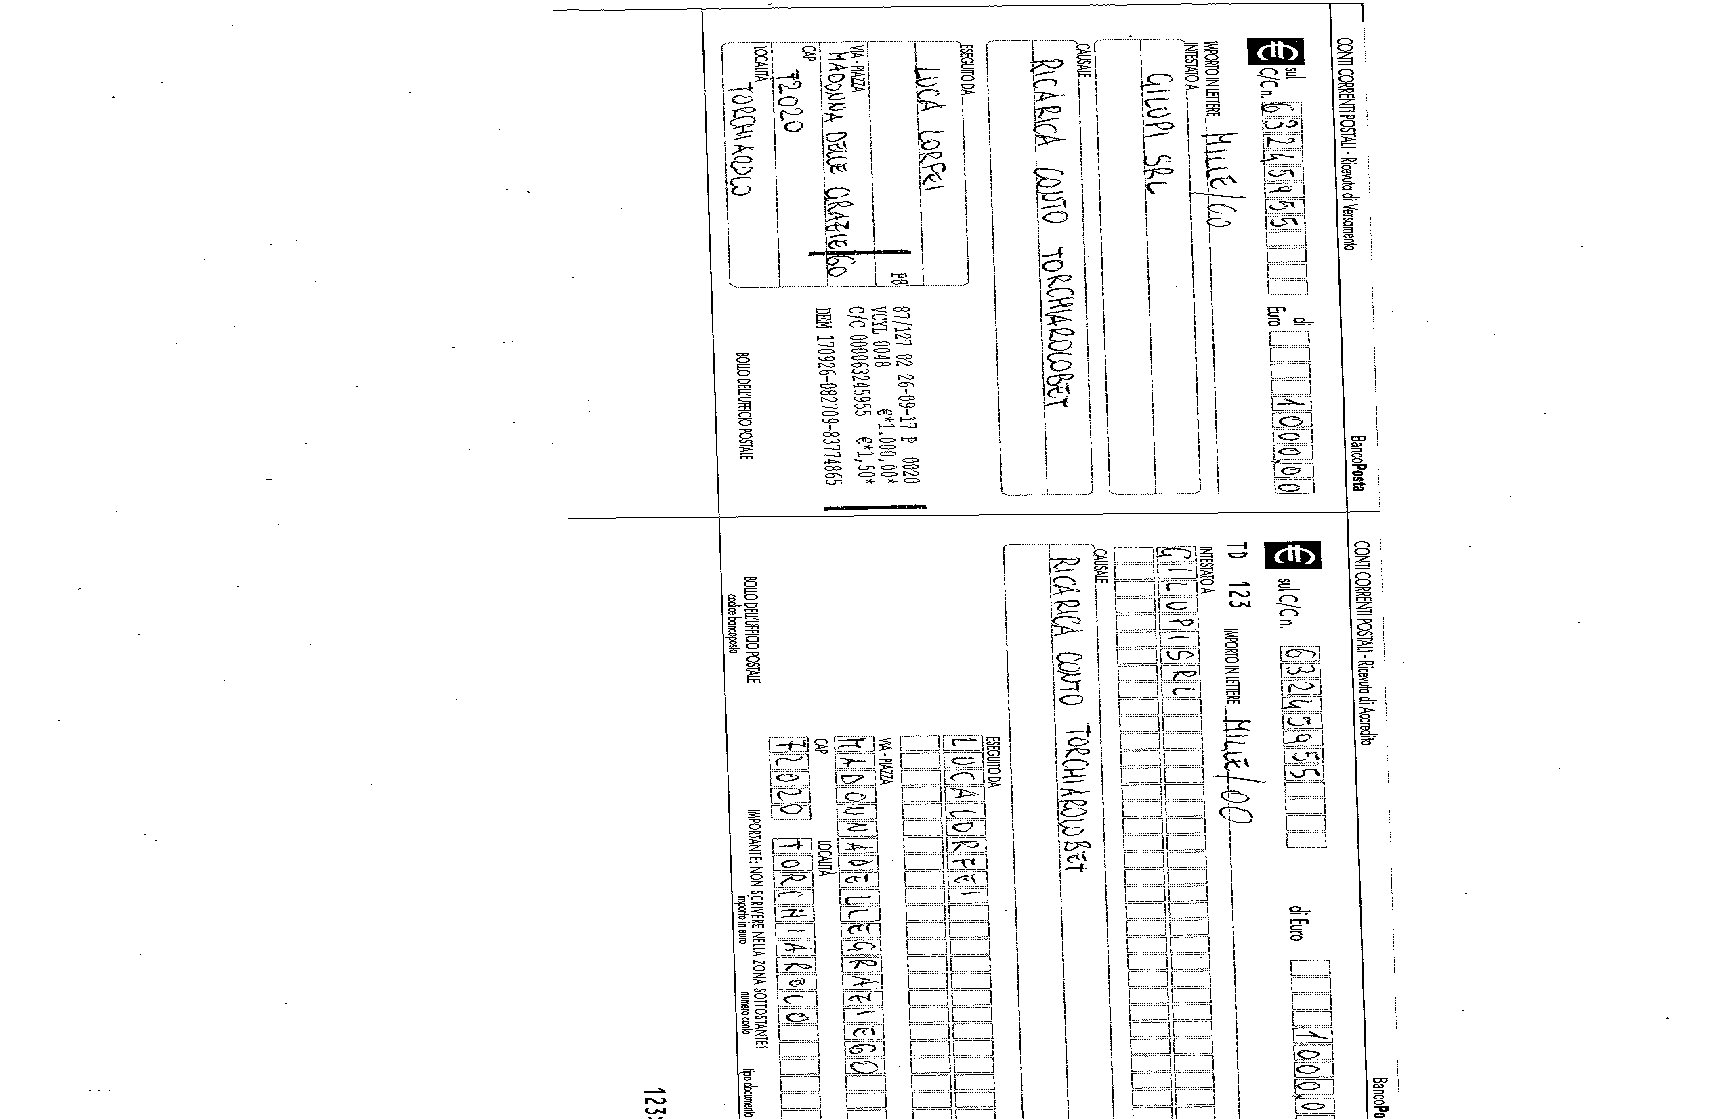 CONTI CORRENTI POSTALI - Ricevuta di Versamento
BancoPosta
sul
C/C n. 63245955
di
Euro 1000,00
IMPORTO IN LETTERE MILLE/00
INTESTATO A
GILUPI SRL
CAUSALE
RICARICA CONTO TORCHIAROLOBET
ESEGUITO DA
LUCA LORFEI
VIA - PIAZZA
MADONNA DELLE GRAZIE 60
CAP
72020
LOCALITÀ
TORCHIAROLO
87/127 02 26-09-17 P 0020
VCYL 0048 €*1.000,00*
C/C 000063245955 €*1,50*
BOLLO DELL'UFFICIO POSTALE
CONTI CORRENTI POSTALI - Ricevuta di Accredito
BancoPo
sul C/C n. 63245955
di Euro 1000,0
TD 123 IMPORTO IN LETTERE MILLE/00
INTESTATO A
GILUPI SRL
CAUSALE
RICARICA CONTO TORCHIAROLOBET
ESEGUITO DA
LUCA LORFEI
VIA - PIAZZA
MADONNA DELLE GRAZIE 60
CAP
LOCALITÀ
72020 TORCHIAROLO
BOLLO DELL'UFFICIO POSTALE
codice bancoposta
IMPORTANTE: NON SCRIVERE NELLA ZONA SOTTOSTANTE
importo in euro
numero conto
tipo documento
123